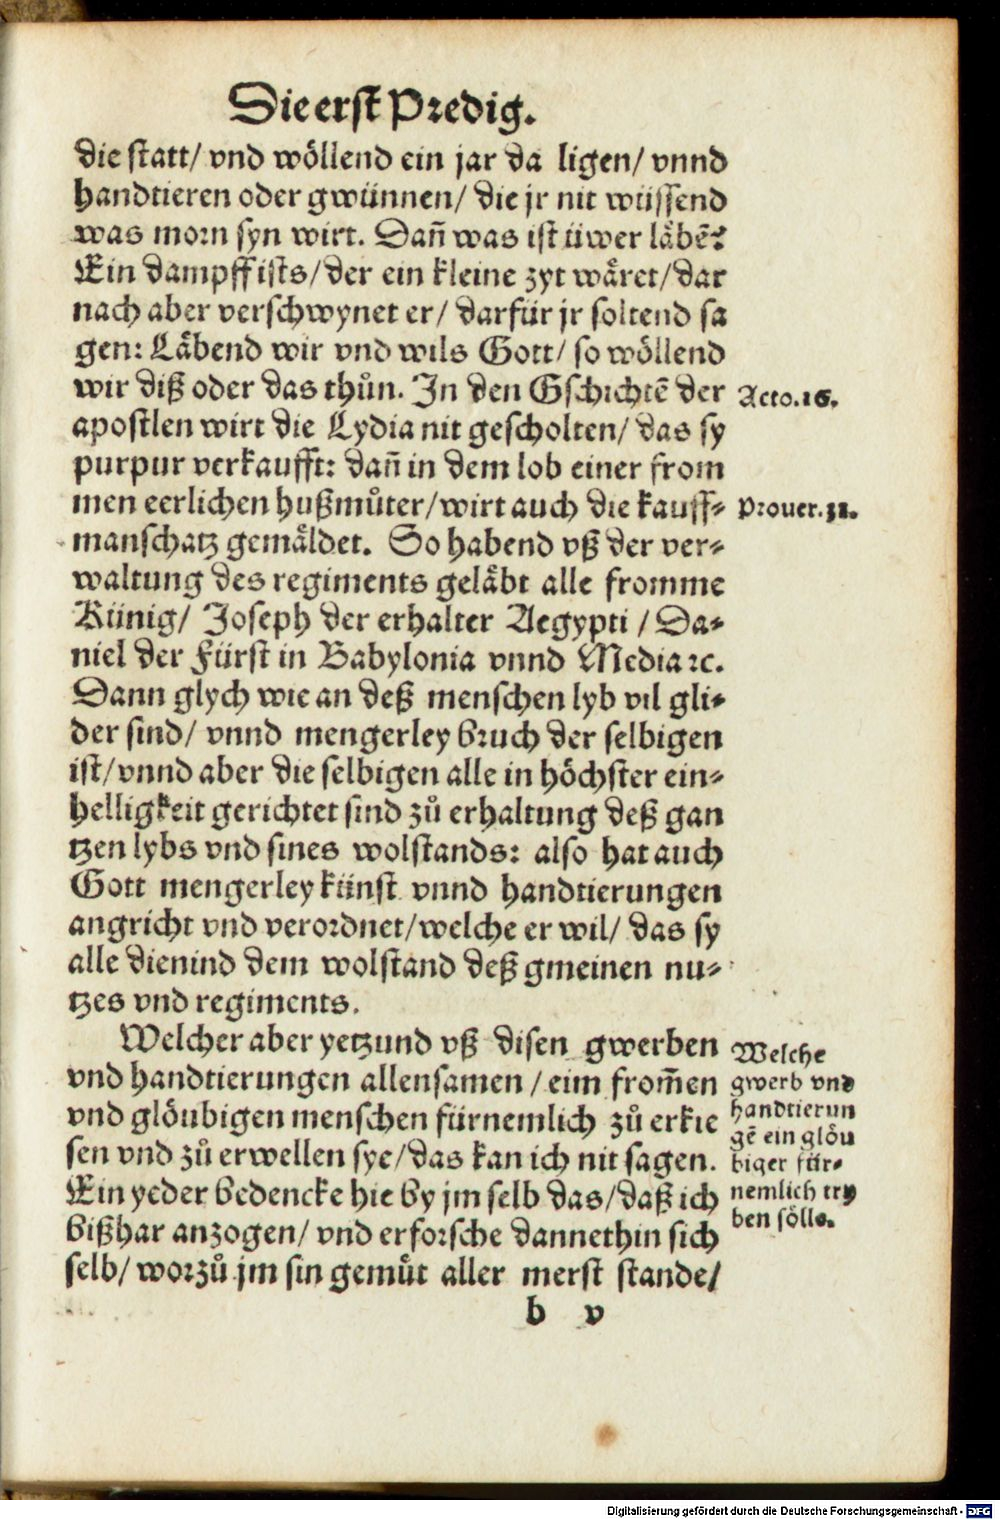 Die erst Predig.
die statt/ vnd wöllend ein jar da ligen/ vnnd
handtieren oder gwünnen/ die jr nit wüssend
was morn syn wirt. Dañ was ist üwer läbē?
Ein dampff ists/ der ein kleine zyt wäret/ dar
nach aber verschwynet er/ darfür jr soltend sa
gen: Läbend wir vnd wils Gott/ so wöllend
wir diß oder das thůn. In den Gschichtē der
Acto.16.
apostlen wirt die Lydia nit gescholten/ das sy
purpur verkaufft: dañ in dem lob einer from
men eerlichen hußmůter/ wirt auch die kauff-
Prouer.31.
manschatz gemäldet. So habend vß der ver-
waltung des regiments geläbt alle fromme
Künig/ Joseph der erhalter Aegypti/ Da-
niel der Fürst in Babylonia vnnd Media ꝛc.
Dann glych wie an deß menschen lyb vil gli-
der sind/ vnnd mengerley bruch der selbigen
ist/ vnnd aber die selbigen alle in höchster ein-
helligkeit gerichtet sind zů erhaltung deß gan
tzen lybs vnd sines wolstands: also hat auch
Gott mengerley künst vnnd handtierungen
angricht vnd verordnet/ welche er wil/ das sy
alle dienind dem wolstand deß gmeinen nu-
tzes vnd regiments.
Welcher aber yetzund vß disen gwerben
vnd handtierungen allensamen/ eim from̄en
vnd glöubigen menschen fürnemlich zů erkie
sen vnd zů erwellen sye/ das kan ich nit sagen.
Ein yeder bedencke hie by jm selb das/ daß ich
bißhar anzogen/ vnd erforsche dannethin sich
selb/ worzů jm sin gemüt aller merst stande/
Welche
gwerb vnd
handtierun
gē ein glöu
biger für-
nemlich try
ben sölle.
b v
Digitalisierung gefördert durch die Deutsche Forschungsgemeinschaft - DFG